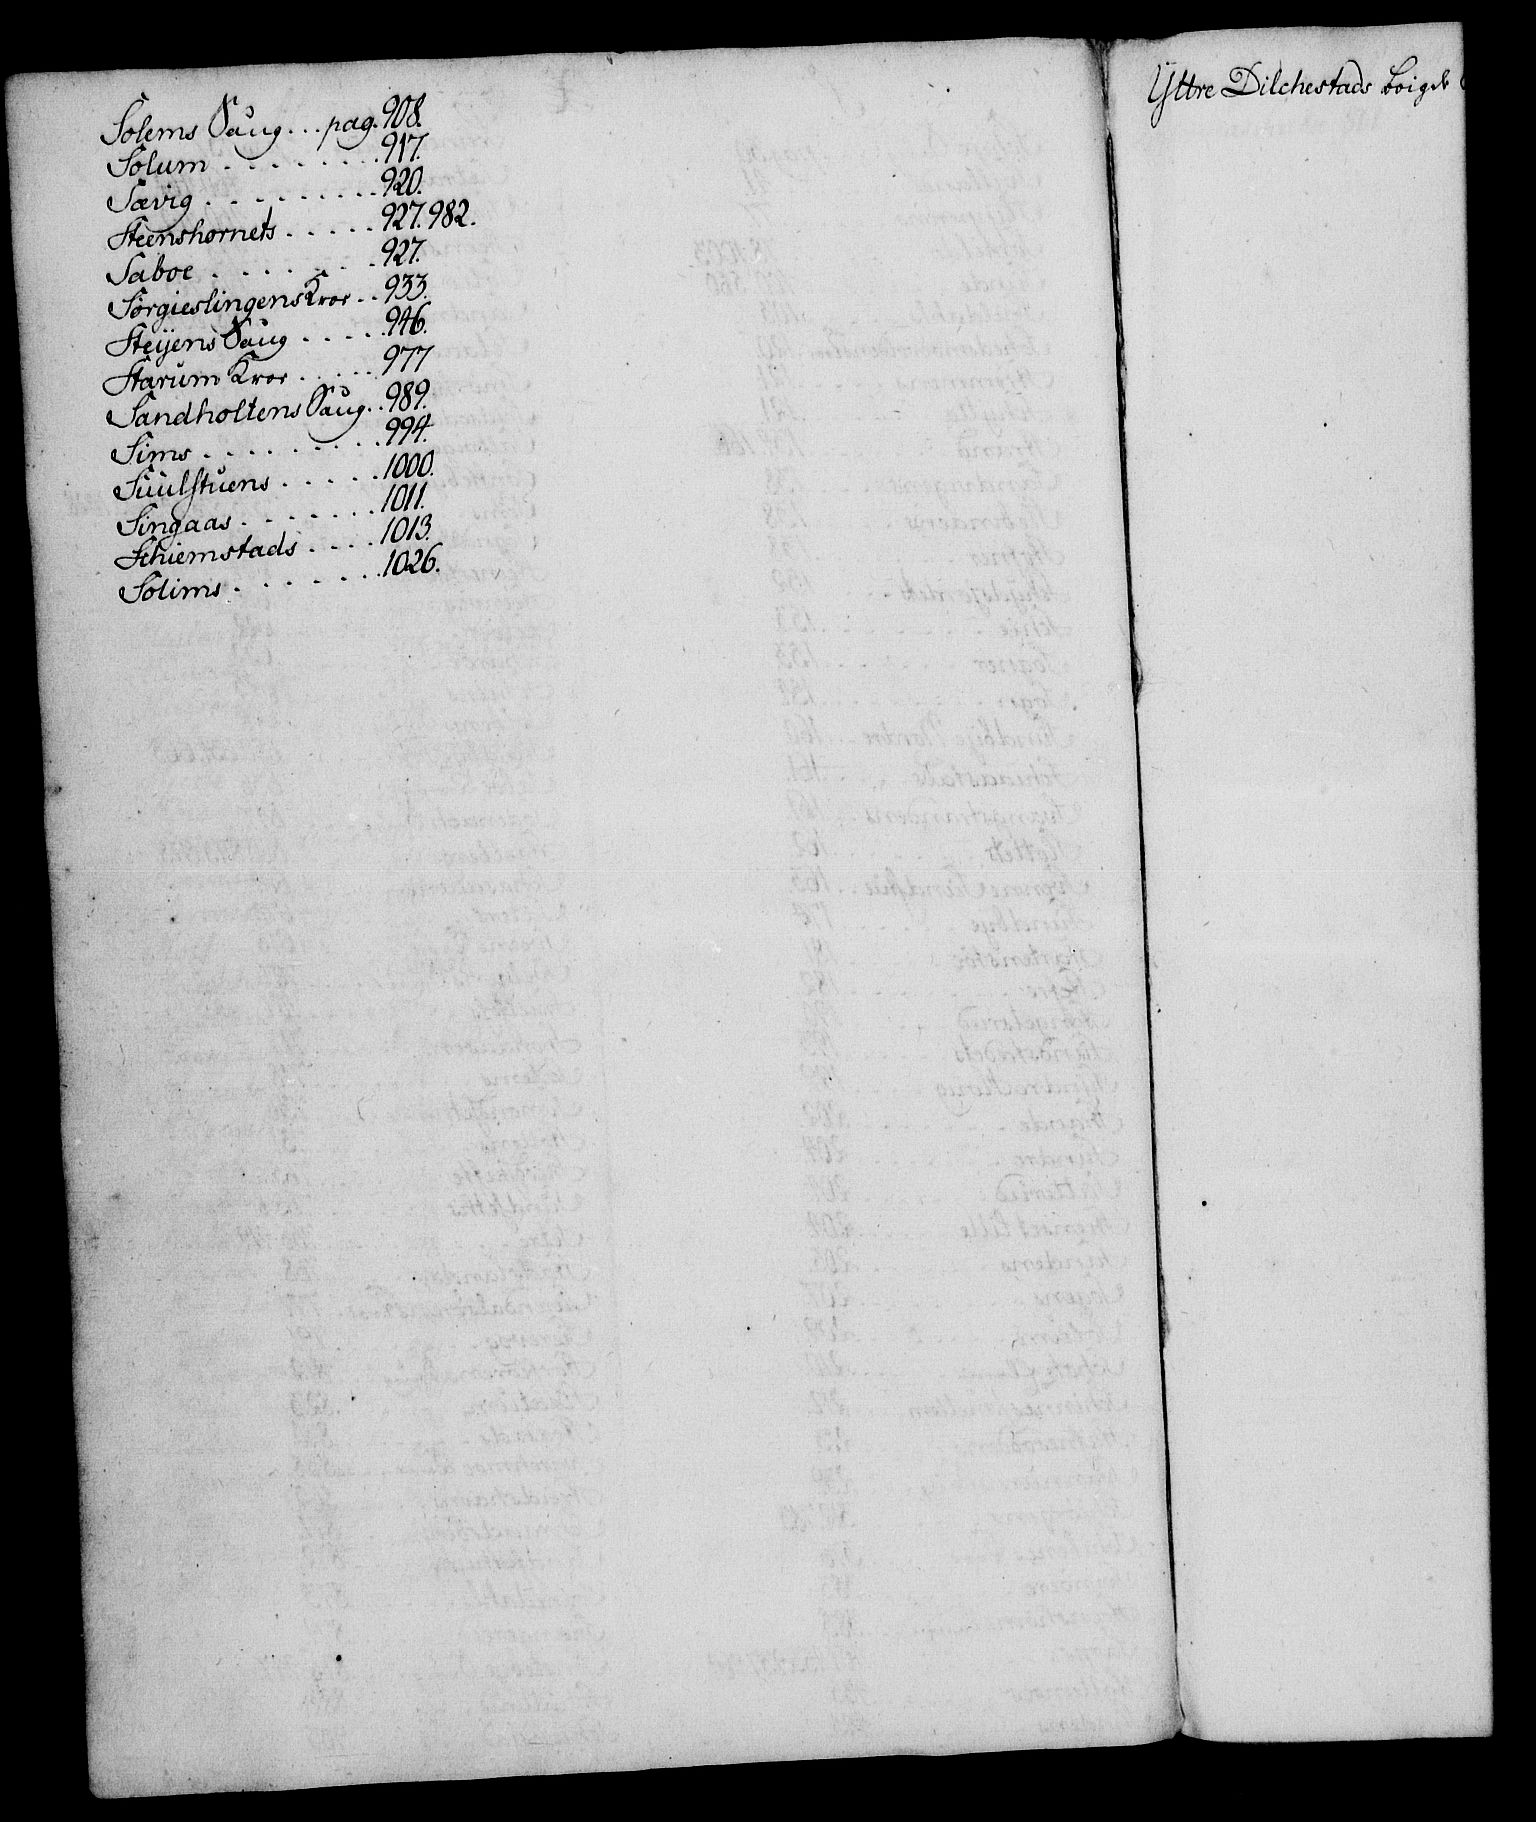 Solems Saug... pag. 908.
Solum . . . . . . . . . 917.
Sævig . . . . . . . . . 920.
Steenshornets . . . . . 927. 982.
Saboe . . . . . . . . 927.
Sørgieslingens Kroe . . 933.
Steijens Saug . . . . . 946.
Starum Kroe . . . . . 977
Sandholtens Saug . . 989.
Sims . . . . . . . . . 994.
Suulstuens . . . . . 1000.
Singaas . . . . . . . 1011.
Schiemstads . . . . 1013.
Solims . . . . . . . 1026.
Yttre Dilchestads